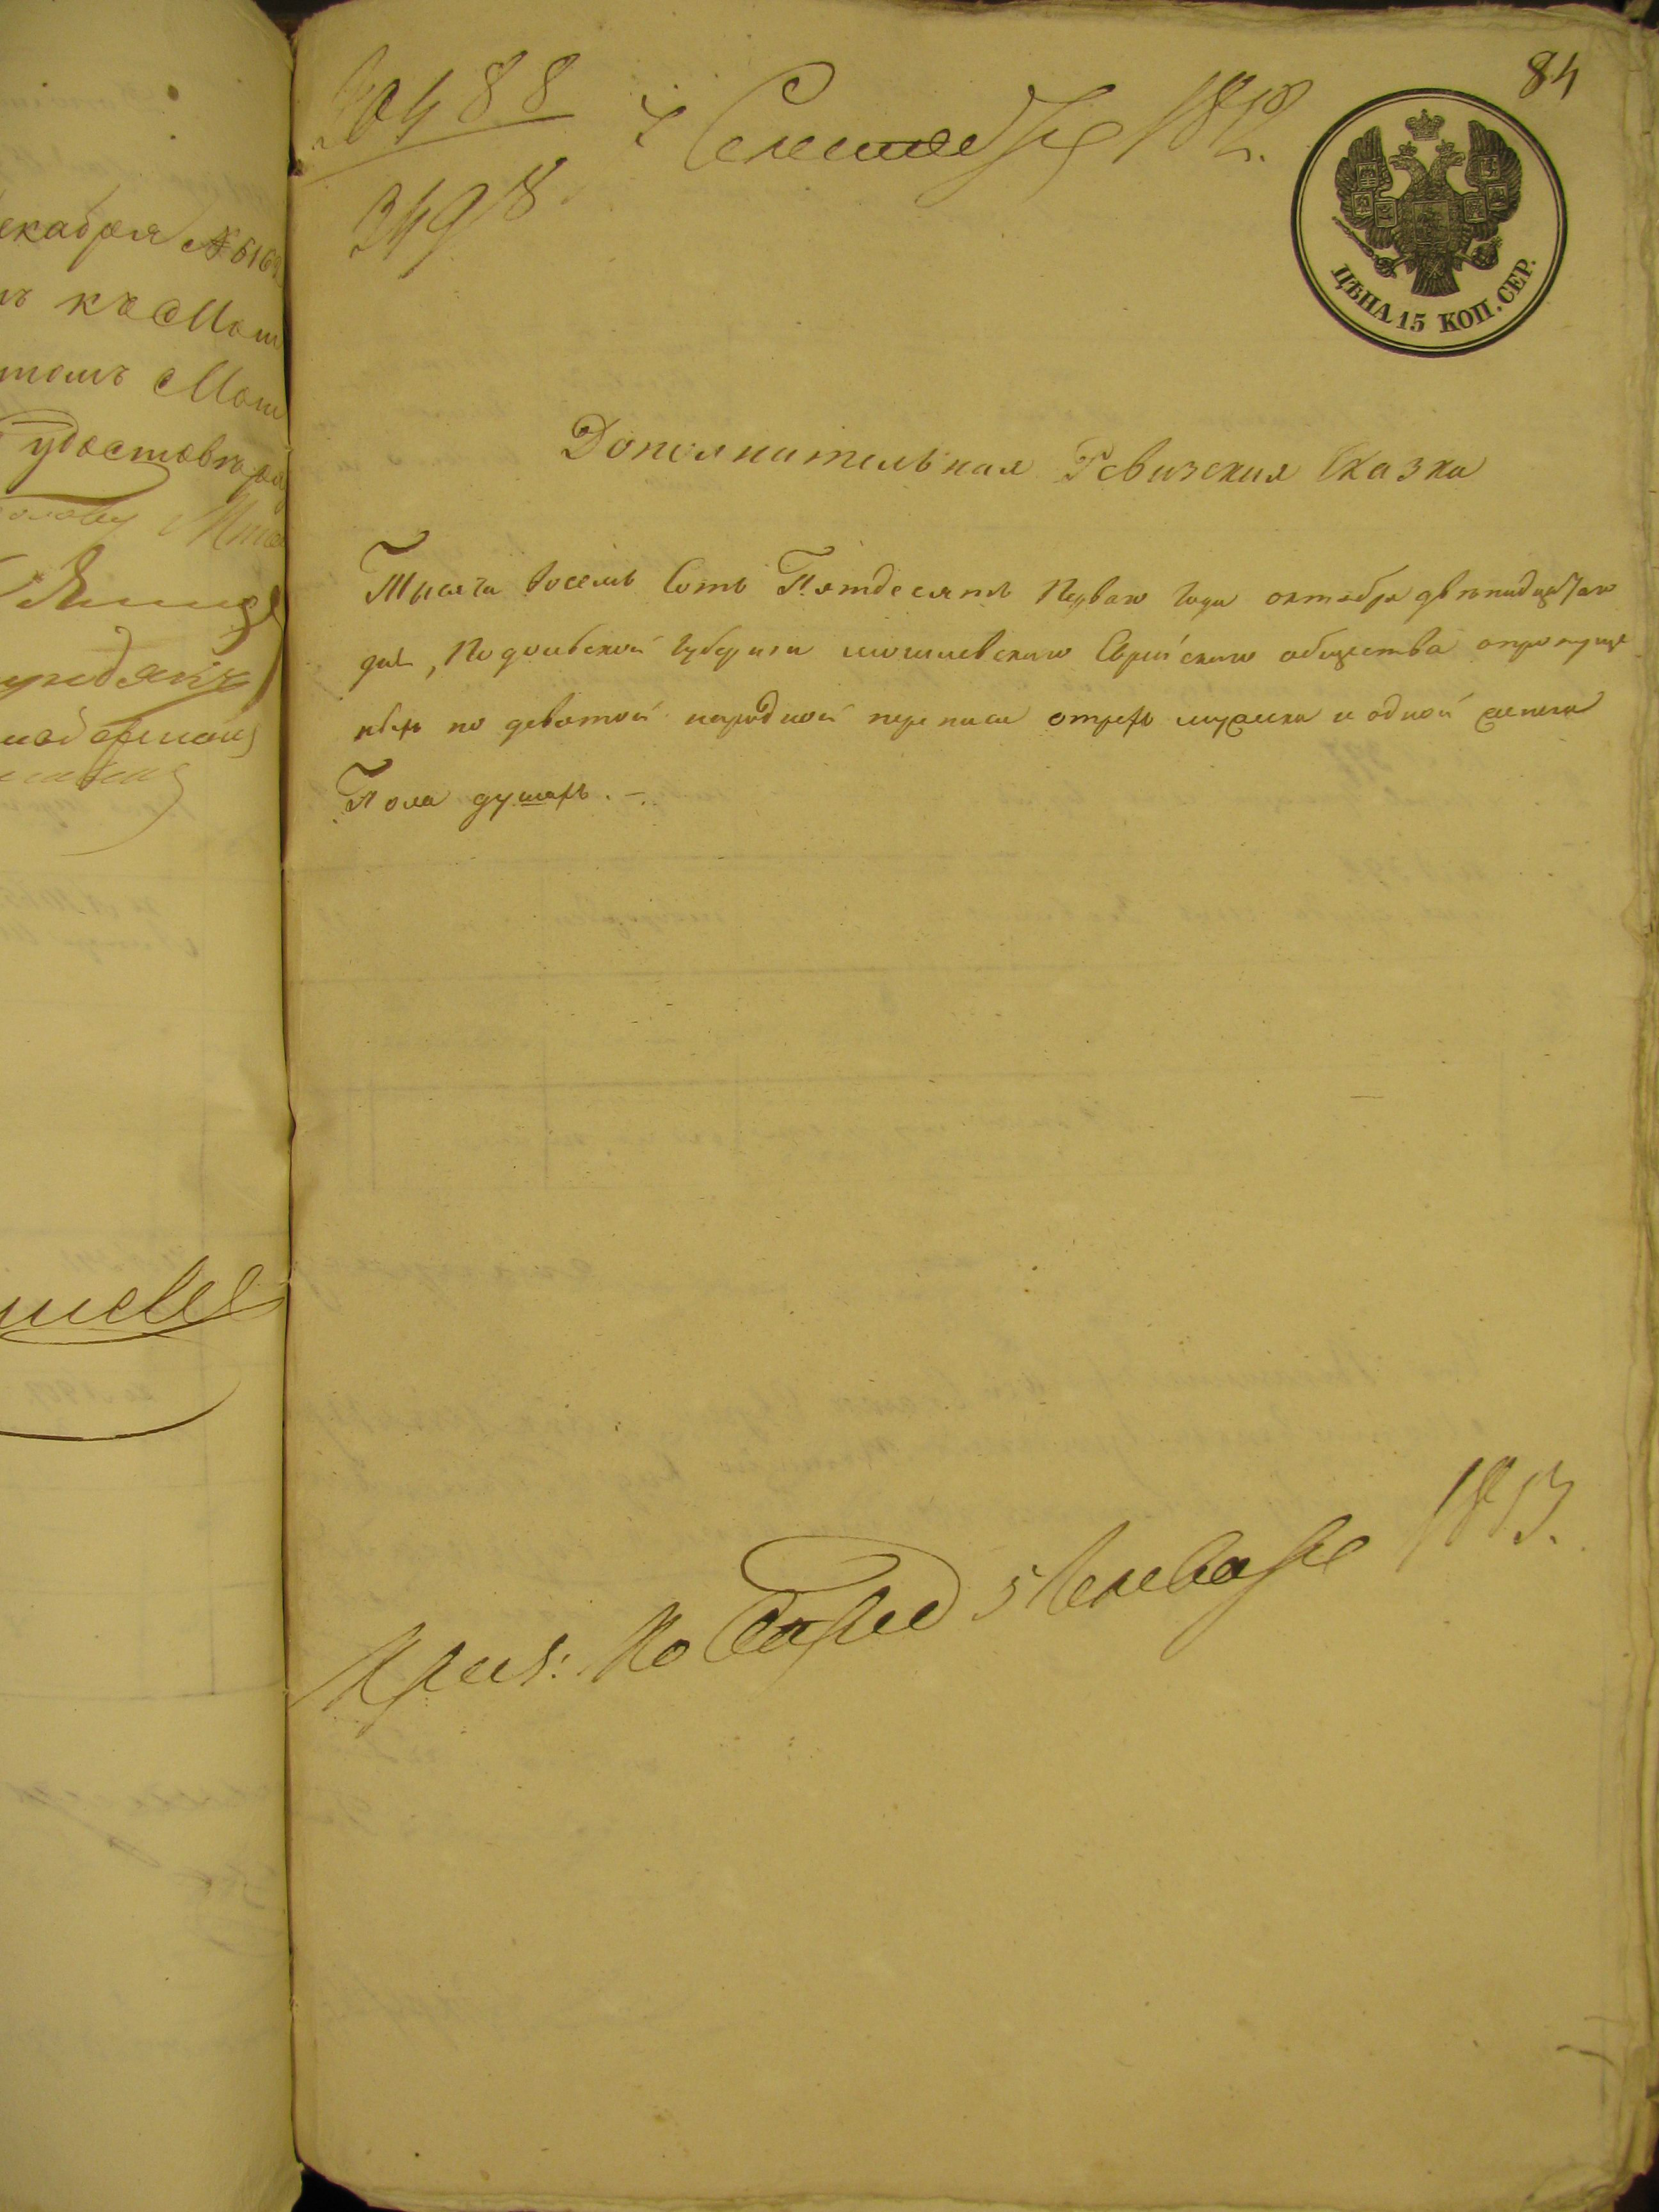 екабря № 616
ъ къ Мош
томъ Мош
удостовѣря
84
30488
7 Сентября 1852.
3498.
ЦѢНА 15 КОП. СЕР.
Дополнительная Ревизская Сказка
Тысяча восемь Сотъ Пятдесятъ Перваго года октября двенадцатаго
дня, Подольской Губернии могилевскаго Еврейскаго общества опропуще
ныхъ по девятой народной переписи отрехъ мужска и одной женска
Пола душахъ. –.
5 Генваря 1853.